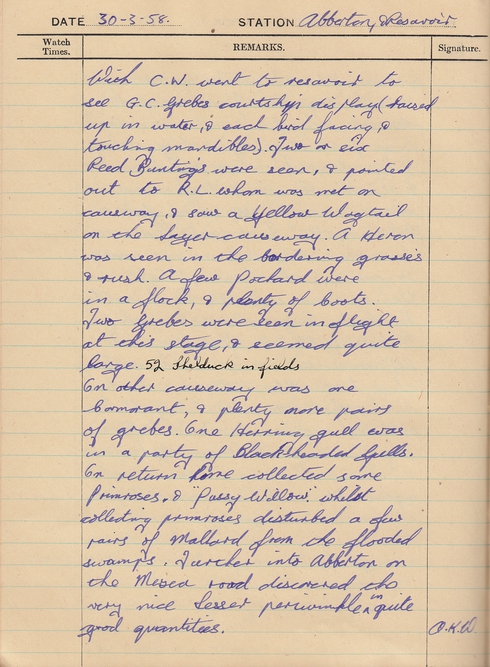 DATE 30-3-58. STATION Abberton, & Resavoir
Watch Times. REMARKS. Signature.
With C.W. went to resavoir to
see G.C. Grebes courtship display (raised
up in water, & each bird facing, &
touching mandibles). Two or six
Reed Buntings were seen, & pointed
out to R.L. whom was met on
causeway, & saw a Yellow Wagtail
on the Layer causeway. A Heron
was seen in the bordering grasses
& rush. A few Pochard were
in a flock, & plenty of Coots.
Two Grebes were seen in flight
at this stage, & seemed quite
large. 52 Shelduck in fields
On other causeway was one
Cormorant, & plenty more pairs
of grebes. One Herring gull was
in a party of Black-headed Gulls.
On return home collected some
Primroses, & "Pussy Willow" whilst
collecting primroses disturbed a few
pairs of Mallard from the flooded
swamps. Further into Abberton on
the Mersea road discovered the
very nice Lesser periwinkle in quite
good quantities. O.K.W.